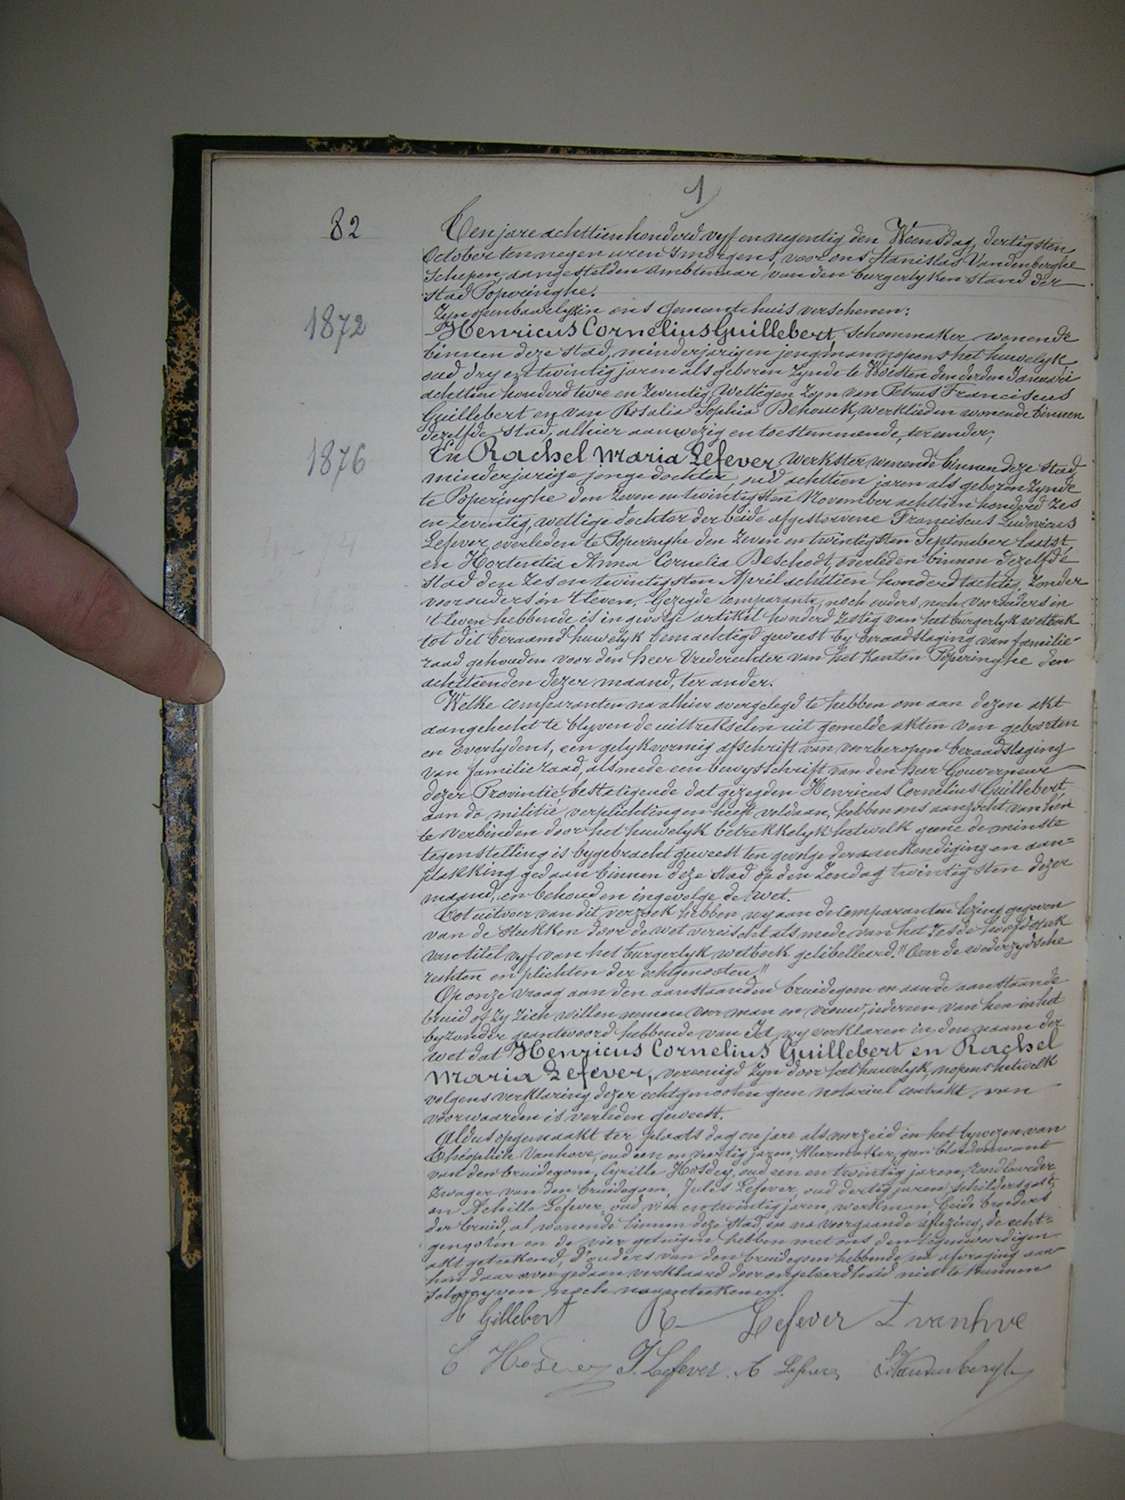 1
82
Ten jare achttien honderd vyf en negentig den Woensdag, dertigsten
October ten negen uren 's morgens, voor ons Stanislas Vandenberghe
Schepen, aangestelden ambtenaar van den burgerlyken stand der
stad Poperinghe.
Zyn openbaarlyk in ons Gemeentehuis verschenen:
1872
Henricus Cornelius Guillebert, schoenmaker wonende
binnen deze stad, minderjarigen jongman nopens het huwelyk
oud dry en twintig jaren als geboren zynde te Woesten den derden Januari
achttien honderd twee en zeventig, wettigen zoon van Petrus Franciscus
Guillebert en van Rosalia Sophia Dehouck, werklieden wonende binnen
dezelfde stad, alhier aanwezig en toestemmende, ter eender;
1876
En Rachel Maria Lefever, werkster, wonende binnen deze stad
minderjarige jonge dochter, oud achttien jaren als geboren zynde
te Poperinghe den zeven en twintigsten November achttien honderd zes
en zeventig, wettige dochter der beide afgestorvene Franciscus Ludovicus
Lefever, overleden te Poperinghe den zeven en twintigsten September laatst
en Hortentia Anna Cornelia Deschodt, overleden binnen dezelfde
stad den zes en twintigsten April achttien honderd tachtig, zonder
voorouders in 't leven. Gezegde comparante, noch ouders noch voorouders in
't leven hebbende is in gevolge artikel honderd zestig van het burgerlyk wetboek
tot dit beraamd huwelyk bemachtigd geweest by beraadslaging van familie-
raad gehouden voor den heer Vrederechter van het Kanton Poperinghe den
achttienden dezer maand, ter ander.
Welke comparanten na alhier overgelegd te hebben om aan dezen akt
aangehecht te blyven de uittrekselen uit gemelde akten van geboorten
en overlydens, een gelykvormig afschrift van voorberopen beraadslaging
van familieraad, alsmede een bewysschrift van den heer Gouverneur
dezer Provintie bestatigende dat gezegden Henricus Cornelius Guillebert
aan de militie verplichtingen heeft voldaan, hebben ons aanzocht van hen
te verbinden door het huwelyk betrekkelyk hetwelk geene de minste
tegenstelling is bygebracht geweest ten gevolge der aankondiging en aan-
plakking gedaan binnen deze stad op den Zondag twintigsten dezer
maand, en behouden ingevolge de wet.
Tot uitvoer van dit verzoek hebben wy aan de comparanten lezing gegeven
van de stukken door de wet vereischt als mede van het zesde hoofdstuk
van titel vyf van het burgerlyk wetboek gelibelleerd "Over de wederzydsche
rechten en plichten der echtgenooten."
Op onze vraag aan den aanstaanden bruidegom en aan de aanstaande
bruid of zy zich willen nemen voor man en vrouw, iedereen van hen in het
byzonder geantwoord hebbende van Ja, wy verklaren in den naam der
wet dat Henricus Cornelius Guillebert en Rachel
Maria Lefever, vereenigd zyn door het huwelyk, nopens hetwelk
volgens verklaring dezer echtgenooten geen notarieel contrakt van
voorwaarden is verleden geweest.
Aldus opgemaakt ter plaats dag en jare als verzeid in het bywezen van
Theophile Vanhove, oud een en veertig jaren, kleermaker, geen bloedverwant
van den bruidegom, Cyrille Hosdey, oud een en twintig jaren, landbouwer,
zwager van den bruidegom, Jules Lefever, oud dertig jaren, schildersgast,
en Achille Lefever, oud vier en twintig jaren, werkman, beide broeders
der bruid, al wonende binnen deze stad, en na voorgaande aflezing, de echt-
genooten en de vier getuigen hebben met ons den tegenwoordigen
akt geteekend, d'ouders van den bruidegom hebbende na afvraging aan
hun daarover gedaan verklaard door ongeleerdheid niet te kunnen
schryven noch naamteekenen.
H Gillebert R Lefever T vanhve
C Hosdey J. Lefever A Lefever S Vandenberghe